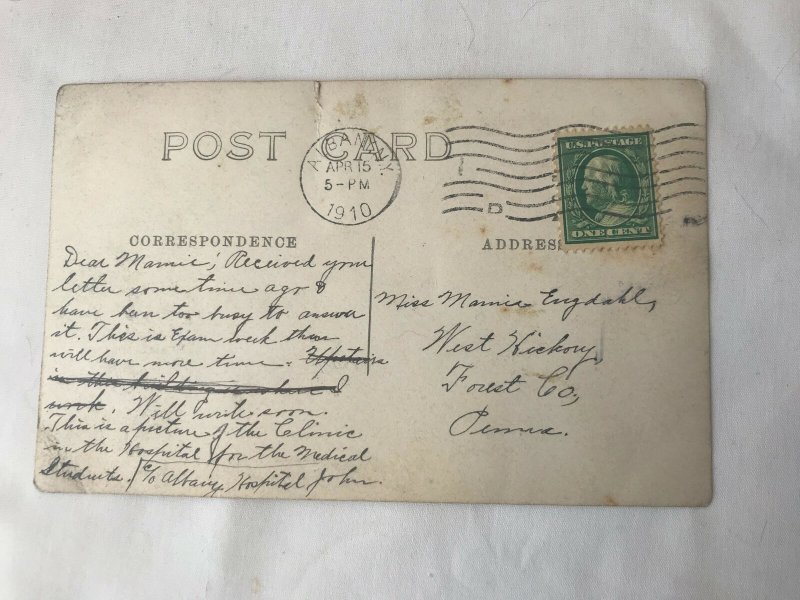 POST CARD
ALBANY, N.Y.
APR 15
5-PM
1910
D
U.S. POSTAGE
ONE CENT
CORRESPONDENCE
ADDRESS
Dear Mamie; Received your
letter some time ago &
have been too busy to answer
it. This is Exam week then
will have more time. Upstairs
in this building is where I
work. Will write soon.
This is a picture of the Clinic
in the Hospital for the Medical
Students. c/o Albany Hospital John.
Miss Mamie Engdahl,
West Hickory,
Forest Co,
Penna.